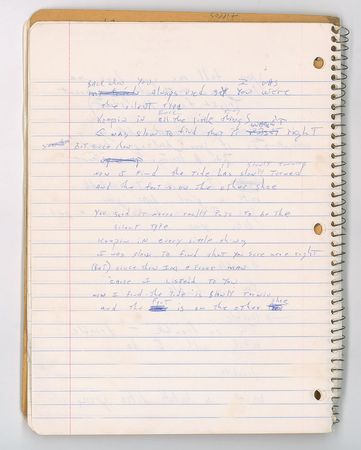 you
I was
always used say you were
the silent type
Keepin in all the little things
I was slow to find that it wasn't right
But since now
slowly turning
now I find the tide has slowly turned
and the foot is on the other shoe
You said it never really pays to be the
silent type
Keepin in every little thing
I was slow to find that you sure were right
(But) since then Im a finer man
'cause I listend to you
now I find the tide is slowly turnin
and the foot is on the other shoe